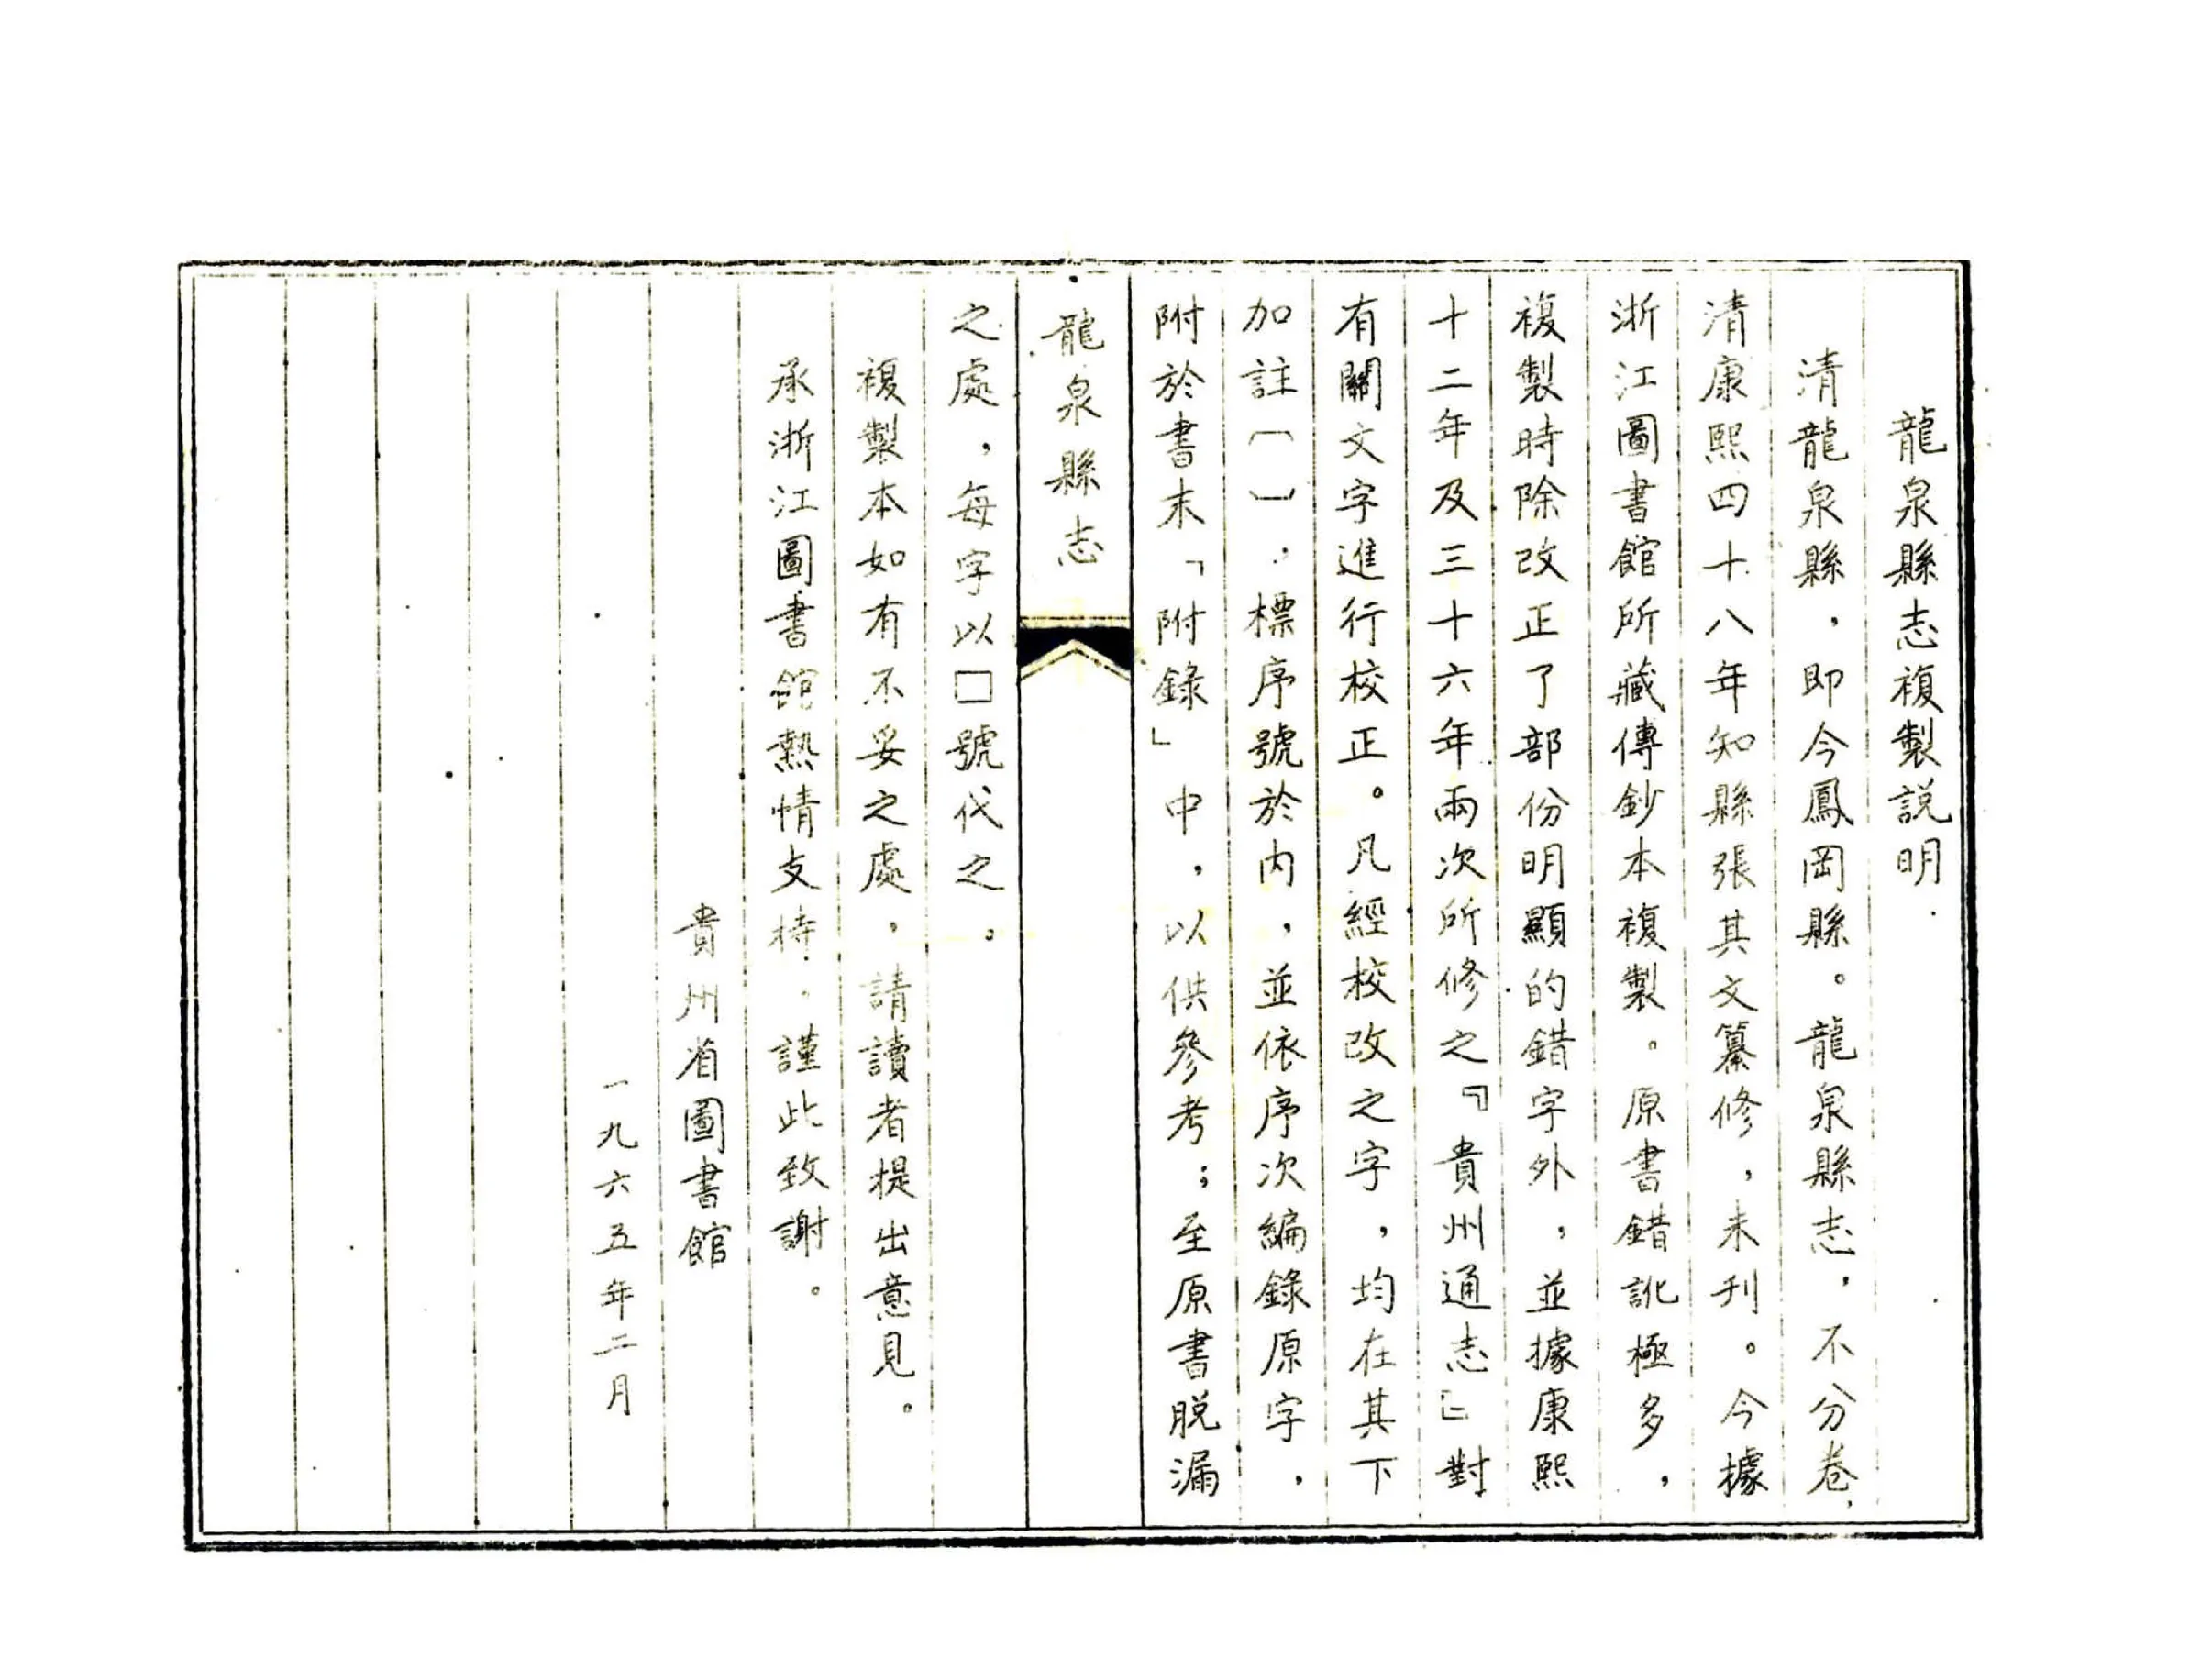 龍泉縣志複製説明
清龍泉縣，即今鳳岡縣。龍泉縣志，不分卷，
清康熙四十八年知縣張其文纂修，未刊。今據
浙江圖書館所藏傳鈔本複製。原書錯訛極多，
複製時除改正了部份明顯的錯字外，並據康熙
十二年及三十六年兩次所修之『貴州通志』對
有關文字進行校正。凡經校改之字，均在其下
加註〔〕，標序號於内，並依序次編錄原字，
附於書末「附錄」中，以供參考；至原書脱漏
龍泉縣志
之處，每字以□號代之。
複製本如有不妥之處，請讀者提出意見。
承浙江圖書館熱情支持，謹此致謝。
貴州省圖書館
一九六五年二月